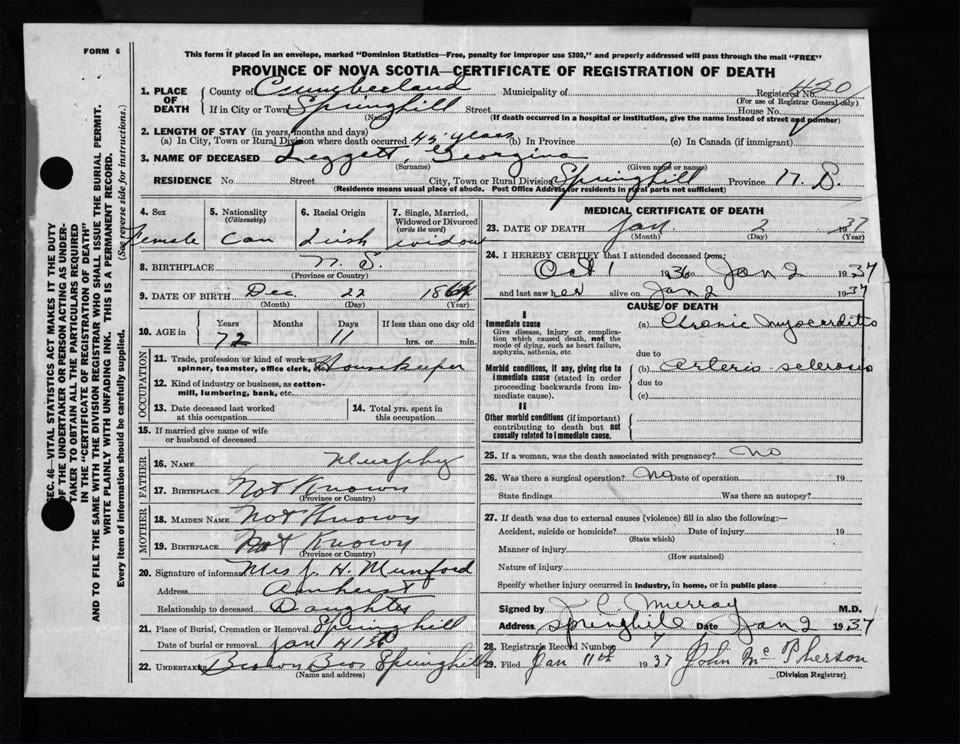 FORM 6
This form if placed in an envelope, marked "Dominion Statistics—Free, penalty for improper use $300," and properly addressed will pass through the mail "FREE"
PROVINCE OF NOVA SCOTIA—CERTIFICATE OF REGISTRATION OF DEATH
SEC. 46—VITAL STATISTICS ACT MAKES IT THE DUTY
OF THE UNDERTAKER OR PERSON ACTING AS UNDER-
TAKER TO OBTAIN ALL THE PARTICULARS REQUIRED
IN THE "CERTIFICATE OF REGISTRATION OF DEATH"
AND TO FILE THE SAME WITH THE DIVISION REGISTRAR WHO SHALL ISSUE THE BURIAL PERMIT.
WRITE PLAINLY WITH UNFADING INK. THIS IS A PERMANENT RECORD.
Every item of information should be carefully supplied. (See reverse side for instructions.)
1. PLACE OF DEATH County of Cumberland Municipality of Registered No. 420
(For use of Registrar General only)
If in City or Town Springhill Street House No.
(Name) (If death occurred in a hospital or institution, give the name instead of street and number)
2. LENGTH OF STAY (in years, months and days)
(a) In City, Town or Rural Division where death occurred 45 years (b) In Province (c) In Canada (if immigrant)
3. NAME OF DECEASED Leggett, Georgina
(Surname) (Given name or names)
RESIDENCE No. Street City, Town or Rural Division Springhill Province N. S.
(Residence means usual place of abode. Post Office Address for residents in rural parts not sufficient)
4. Sex Female
5. Nationality (Citizenship) Can
6. Racial Origin Irish
7. Single, Married, Widowed or Divorced (write the word) widow
8. BIRTHPLACE N. S.
(Province or Country)
9. DATE OF BIRTH Dec. 22 1864
(Month) (Day) (Year)
10. AGE in Years 72 Months Days 11 If less than one day old hrs. or min.
OCCUPATION
11. Trade, profession or kind of work as spinner, teamster, office clerk, Housekeeper
12. Kind of industry or business, as cotton-mill, lumbering, bank, etc.
13. Date deceased last worked at this occupation
14. Total yrs. spent in this occupation
15. If married give name of wife or husband of deceased
FATHER
16. NAME Murphy
17. BIRTHPLACE Not Known
(Province or Country)
MOTHER
18. MAIDEN NAME Not Known
19. BIRTHPLACE Not Known
(Province or Country)
20. Signature of informant Mrs J. H. Mumford
Address Amherst
Relationship to deceased Daughter
21. Place of Burial, Cremation or Removal Springhill
Date of burial or removal Jan 4 19
22. UNDERTAKER Brown Bros Springhill
(Name and address)
MEDICAL CERTIFICATE OF DEATH
23. DATE OF DEATH Jan. 2 1937
(Month) (Day) (Year)
24. I HEREBY CERTIFY that I attended deceased from:
Oct 1 1936 to Jan 2 1937
and last saw her alive on Jan 2 1937
CAUSE OF DEATH
I
Immediate cause
Give disease, injury or complication which caused death, not the mode of dying, such as heart failure, asphyxia, asthenia, etc.
(a) Chronic myocarditis
due to
Morbid conditions, if any, giving rise to immediate cause (stated in order proceeding backwards from immediate cause).
(b) Arterio sclerosis
due to
(c)
II
Other morbid conditions (if important) contributing to death but not causally related to immediate cause.
25. If a woman, was the death associated with pregnancy? no
26. Was there a surgical operation? no Date of operation 19
State findings Was there an autopsy?
27. If death was due to external causes (violence) fill in also the following:—
Accident, suicide or homicide? Date of injury 19
(State which)
Manner of injury
(How sustained)
Nature of injury
Specify whether injury occurred in industry, in home, or in public place
Signed by J. C. Murray M.D.
Address Springhill Date Jan 2 1937
28. Registrar's Record Number 7
29. Filed Jan 11th 1937 John McPherson
(Division Registrar)